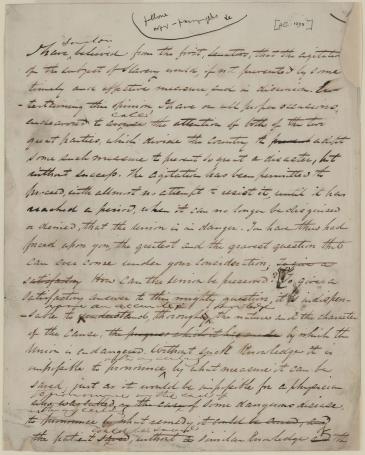 follows
copy - paragraphs &c
Senators
I have, believed from the first, Senators, that the agitation
of the subject of slavery would, if not prevented by some
timely and effective measure, end in disunion. En-
tertaining this opinion I have on all proper occasions,
called
endeavored to the attention of both of the two
great parties, which divide the country to adopt
some such measure to prevent so great a disaster, but
without success. The agitation has been permitted to
proceed, with almost no attempt to resist it, until it has
reached a period, when it can no longer be disguised
or denied, that the Union is in danger. You have thus had
forced upon you the greatest and the gravest question that
can ever come under your consideration, To give a
satisfactory How can the Union be preserved? To give a
satisfactory answer to this mighty question, it is indispen-
sable to understand, thoroughly the nature and the character
of the cause, by which the
Union is endangered. Without such Knowledge it is
impossible to pronounce, by what measure it can be
saved, just as it would be impossible for a physician
who was called in the case of some dangerous disease,
to pronounce by what remedy it could be cured, and
the patient saved, without similar knowledge of the